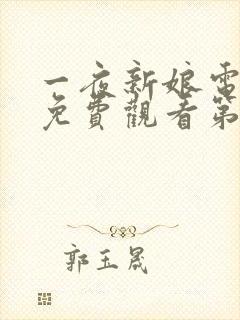 一夜新娘電
免費觀看第
郭玉晟